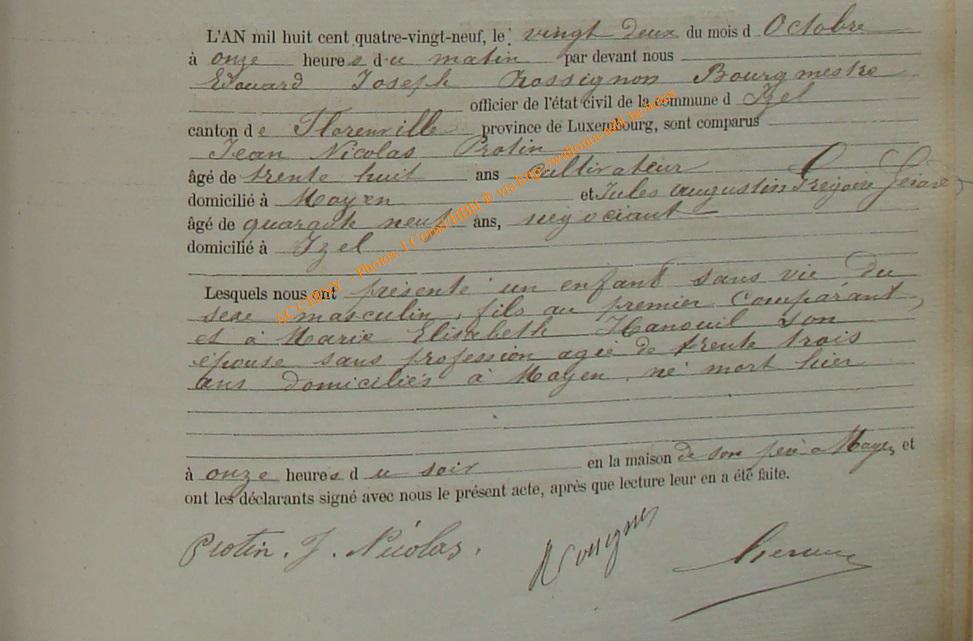 L'AN mil huit cent quatre-vingt-neuf, le vingt deux du mois d Octobre
à onze heures du matin par devant nous
Edouard Joseph Rossignon Bourgmestre
officier de l'état civil de la commune d Izel
canton de Florenville province de Luxembourg, sont comparus
Jean Nicolas Protin
âgé de trente huit ans cultivateur
domicilié à Moyen et Jules Augustin Grégoire
âgé de quarante neuf ans, négociant
domicilié à Izel
Lesquels nous ont présenté un enfant sans vie du
sexe masculin, fils au premier Comparant,
et à Marie Elisabeth Hanouil son
épouse sans profession agée de trente trois
ans domiciliés à Moyen, né mort hier
à onze heures du soir en la maison de son père à Moyen et
ont les déclarants signé avec nous le présent acte, après que lecture leur en a été faite.
Protin. J. Nicolas.
Rossignon